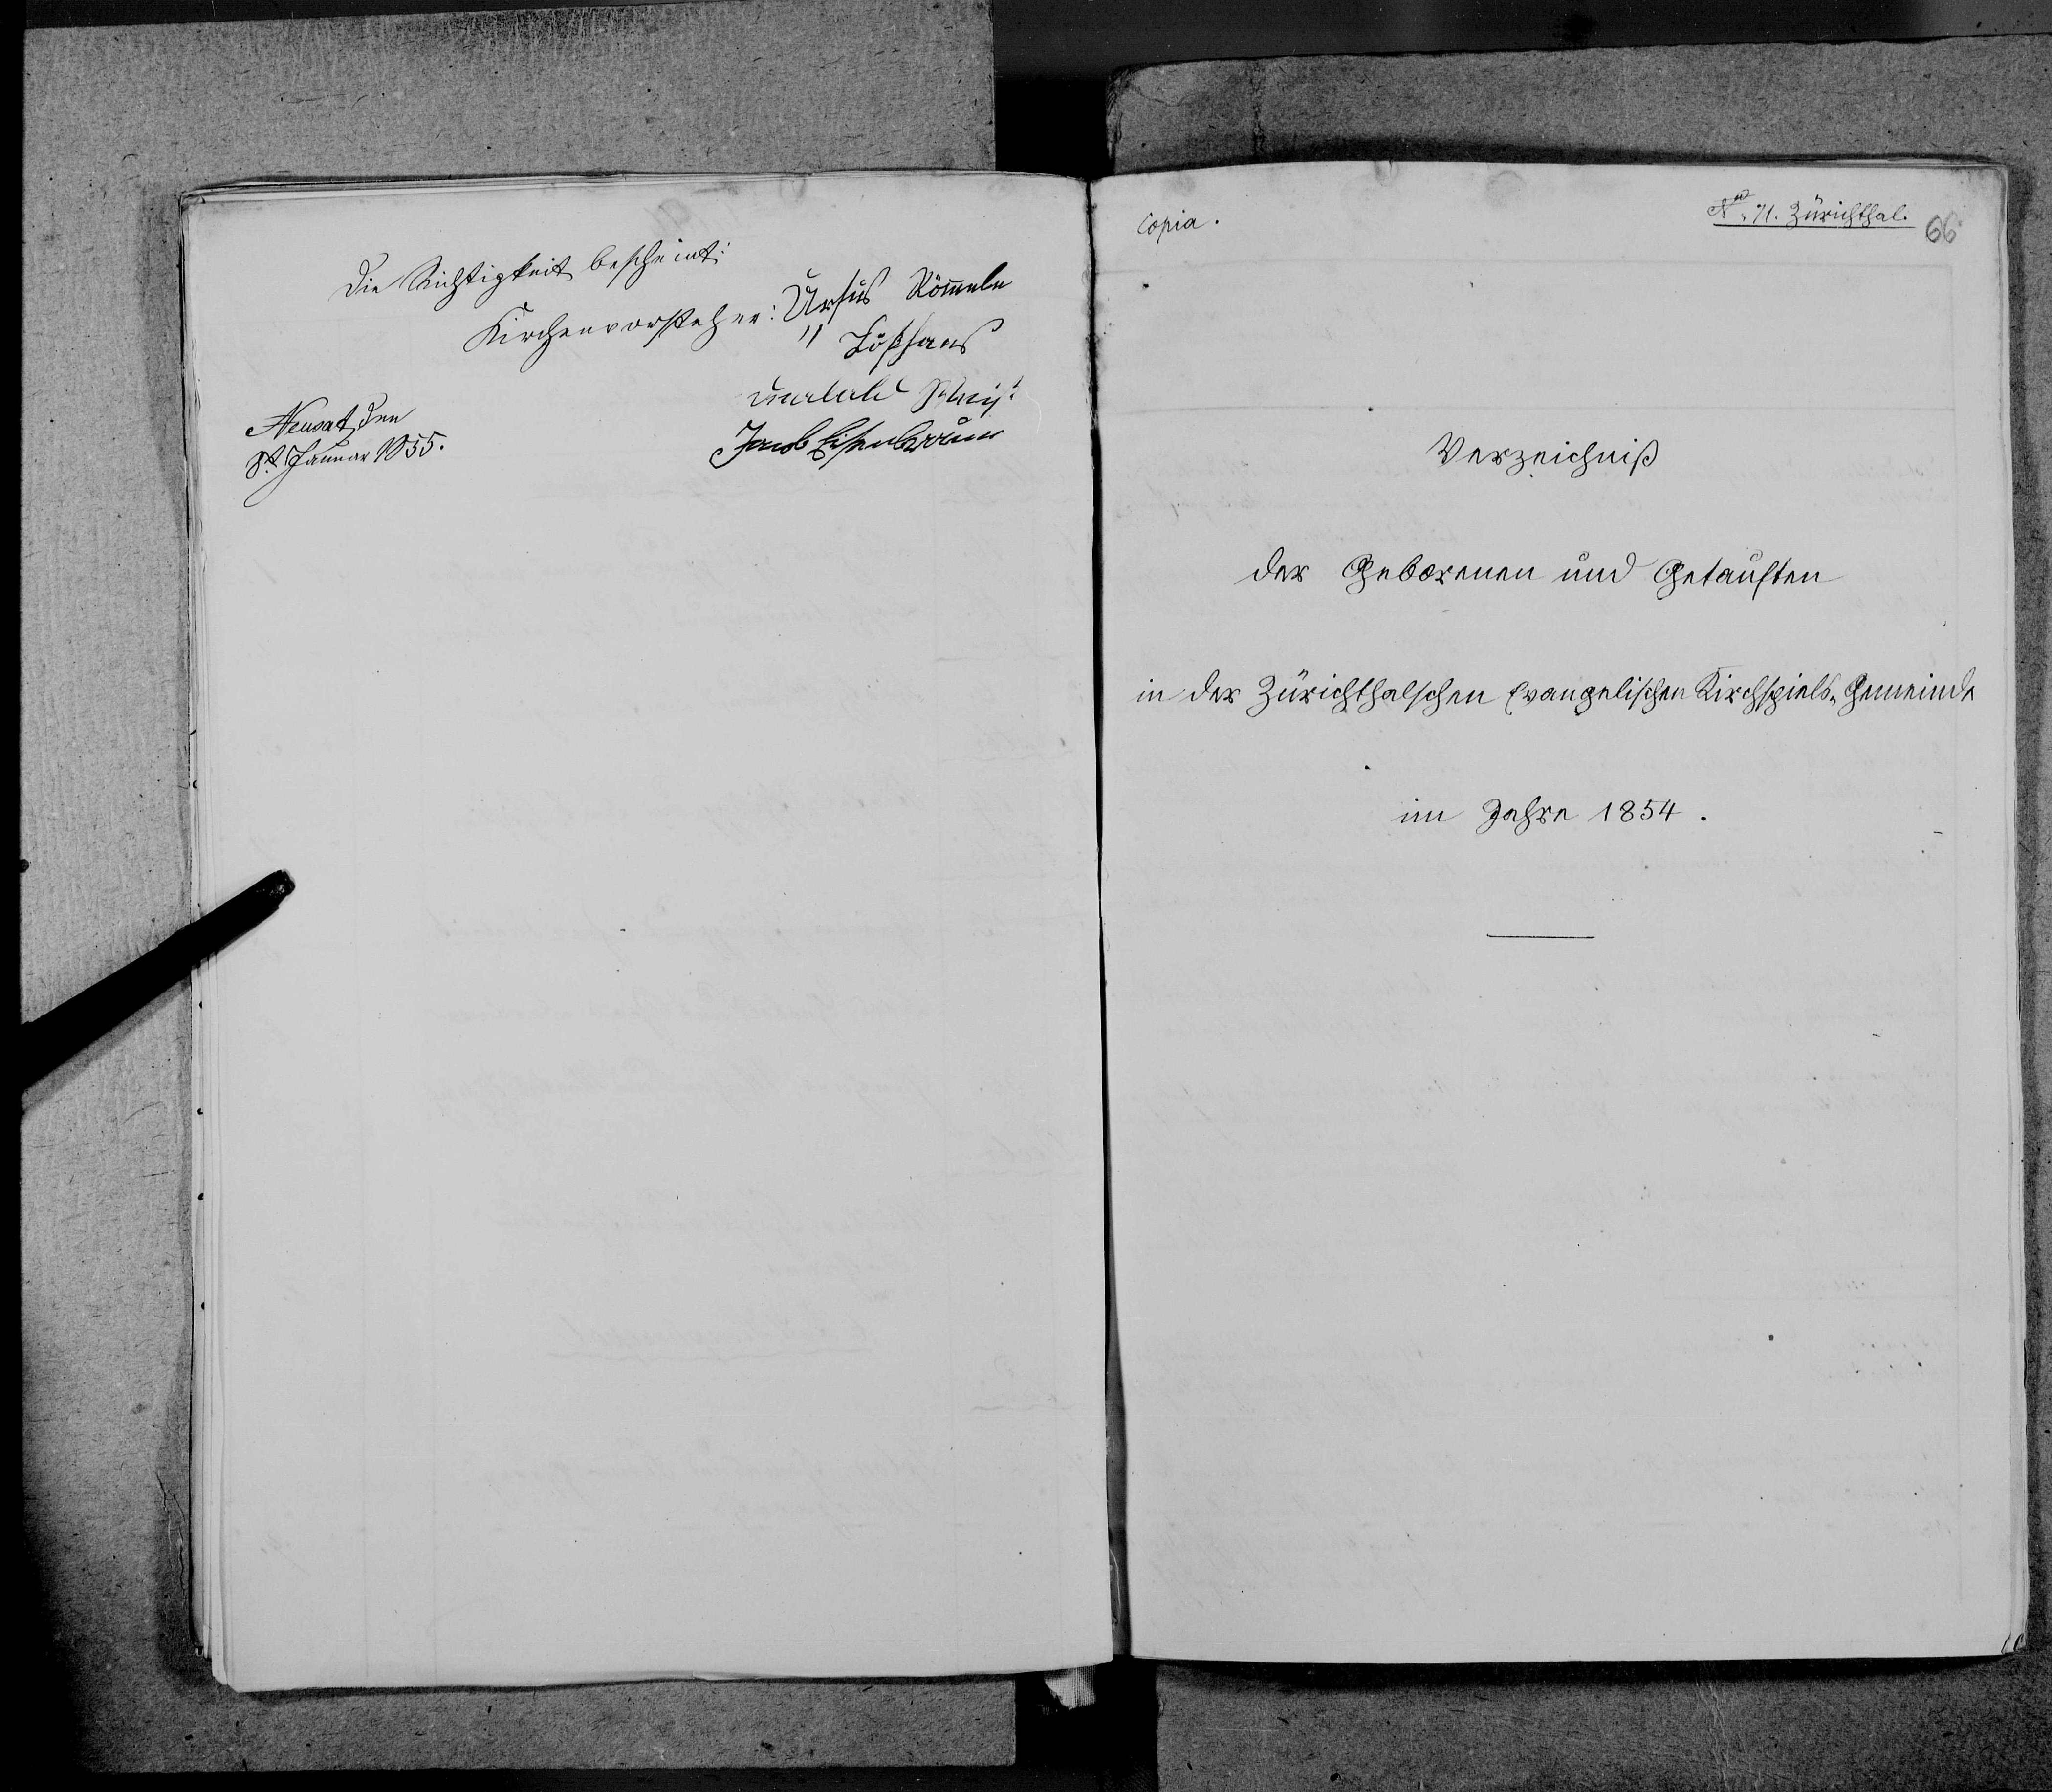 Die Richtigkeit bescheint:
Kirchenvorsteher: Ursus Römmele
"
Neusatz den
8t Januar 1855.
Jacob Eisenbraun
Copia.
No 71. Zürichthal.
66
Verzeichniß
der Geborenen und Getauften
in der Zürichthalschen Evangelischen Kirchspiels-Gemeinde
im Jahre 1854.